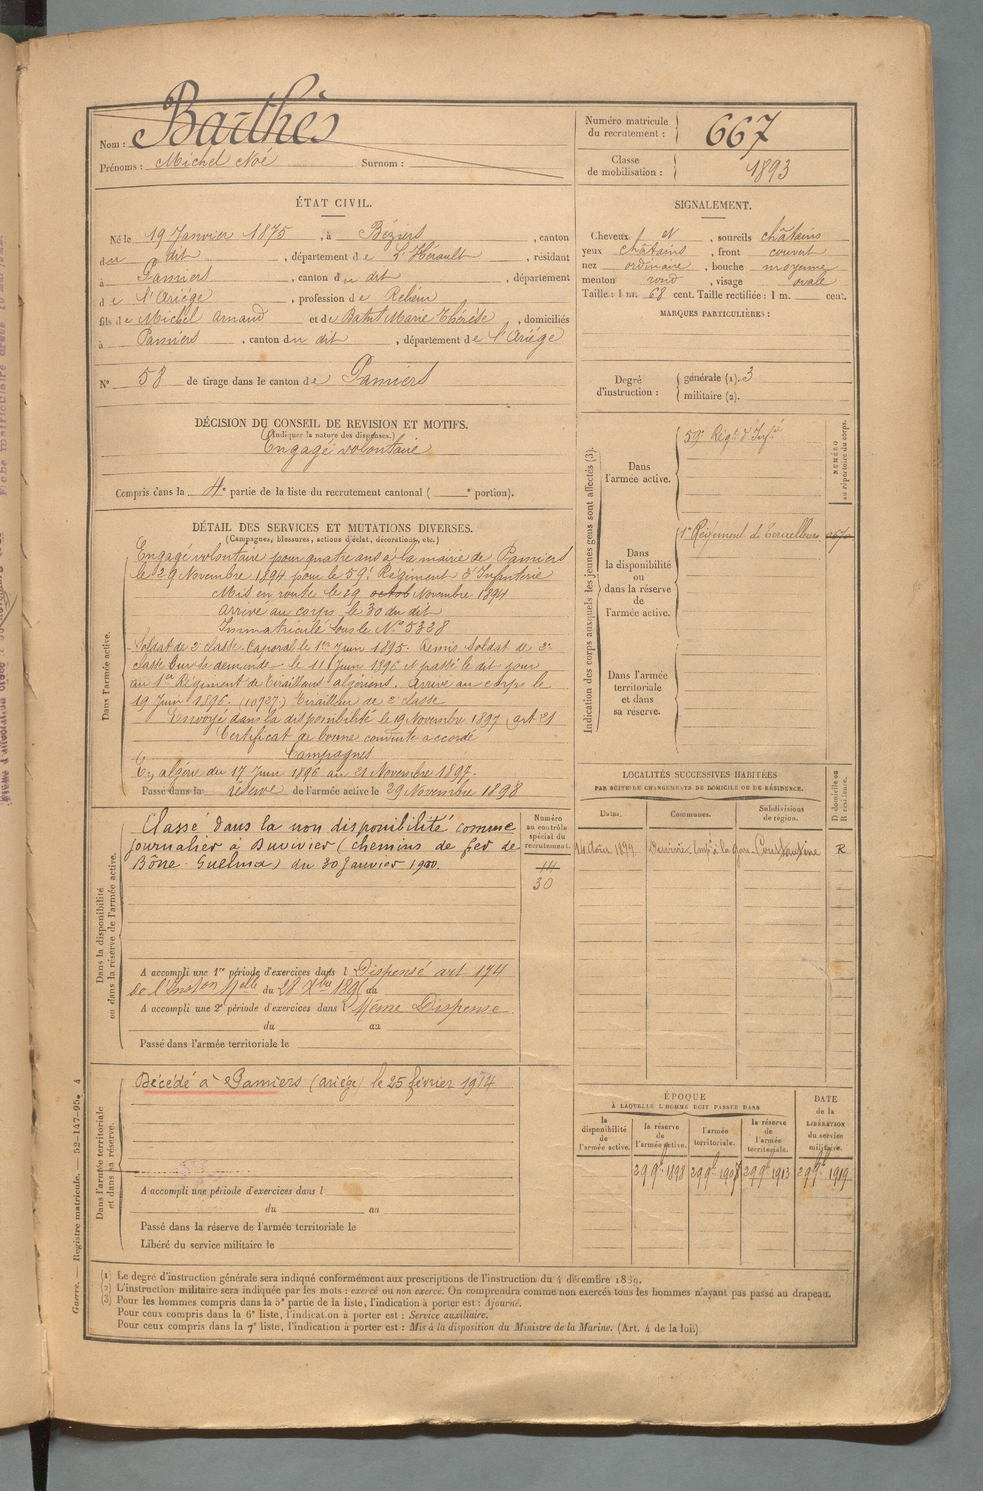 Nom : Barthès
Prénoms : Michel Noé Surnom :
Numéro matricule du recrutement : 667
Classe de mobilisation : 1893
ÉTAT CIVIL.
Né le 19 Janvier 1875, à Béziers, canton
du dit, département de L'Hérault, résidant
à Pamiers, canton du dit, département
de l'Ariège, profession de Relieur
fils de Michel Arnaud et de Marie Thérèse, domiciliés
à Pamiers, canton du dit, département de l'Ariège
N° 58 de tirage dans le canton de Pamiers
SIGNALEMENT.
Cheveux et, sourcils châtains
yeux châtains, front couvert
nez ordinaire, bouche moyenne
menton rond, visage ovale
Taille : 1 m. 68 cent. Taille rectifiée : 1 m. cent.
MARQUES PARTICULIÈRES :
Degré d'instruction : générale (1). 3
militaire (2).
DÉCISION DU CONSEIL DE REVISION ET MOTIFS.
(Indiquer la nature des dispenses.)
Engagé volontaire
Compris dans la 4e partie de la liste du recrutement cantonal ( e portion).
DÉTAIL DES SERVICES ET MUTATIONS DIVERSES.
(Campagnes, blessures, actions d'éclat, décorations, etc.)
Dans l'armée active.
Engagé volontaire pour quatre ans à la mairie de Pamiers
le 29 Novembre 1894 pour le 59e Régiment d'Infanterie
Mis en route le 29 octob Novembre 1894
arrivé au corps le 30 du dit
Immatriculé sous le N° 5328
Soldat de 2e classe. Caporal le 1er Juin 1895. Remis soldat de 2e
classe sur sa demande le 11 Juin 1896 et passé le dit jour
au 1er Régiment de Tirailleurs algériens. Arrivé au corps le
19 Juin 1896. (10727) Tirailleur de 2e classe
Envoyé dans la disponibilité le 19 Novembre 1897 (art 21
Certificat de bonne conduite accordé
Campagnes
En algérie du 17 Juin 1896 au 21 Novembre 1897.
Passé dans la réserve de l'armée active le 29 Novembre 1898
Indication des corps auxquels les jeunes gens sont affectés (3).
Dans l'armée active. 59e Régt d'Inf.ie
NUMÉRO au répertoire du corps.
Dans la disponibilité ou dans la réserve de l'armée active. 1er Régiment de Tirailleurs
Dans l'armée territoriale et dans sa réserve.
Dans la disponibilité ou dans la réserve de l'armée active.
Classé dans la non disponibilité comme
journalier à Duvivier (chemins de fer de
Bône-Guelma) du 30 Janvier 1900.
Numéro au contrôle spécial du recrutement.
30
A accompli une 1re période d'exercices dans l Dispensé art 174
de l'Inston Nelle du 28 Xbre au
A accompli une 2e période d'exercices dans l Même Dispense
du au
Passé dans l'armée territoriale le
LOCALITÉS SUCCESSIVES HABITÉES
PAR SUITE DE CHANGEMENTS DE DOMICILE OU DE RÉSIDENCE.
Dates. Communes. Subdivisions de région. D domicile ou R résidence.
14 Août 1899 Duvivier Empé à la gare Constantine R
Dans l'armée territoriale et dans sa réserve.
Décédé à Pamiers (ariège) le 25 février 1914
A accompli une période d'exercices dans l
du au
Passé dans la réserve de l'armée territoriale le
Libéré du service militaire le
ÉPOQUE
A LAQUELLE L'HOMME DOIT PASSER DANS
la disponibilité de l'armée active. la réserve de l'armée active. l'armée territoriale. la réserve de l'armée territoriale. DATE de la LIBÉRATION du service militaire.
29 9bre 1898 29 9bre 1907 29 9bre 1913 29 9bre 1919
(1) Le degré d'instruction générale sera indiqué conformément aux prescriptions de l'instruction du 4 décembre 1889.
(2) L'instruction militaire sera indiquée par les mots : exercé ou non exercé. On comprendra comme non exercés tous les hommes n'ayant pas passé au drapeau.
(3) Pour les hommes compris dans la 5e partie de la liste, l'indication à porter est : Ajourné.
Pour ceux compris dans la 6e liste, l'indication à porter est : Service auxiliaire.
Pour ceux compris dans la 7e liste, l'indication à porter est : Mis à la disposition du Ministre de la Marine. (Art. 4 de la loi.)
Guerre. — Registre matricule. — 52-147-95. 4